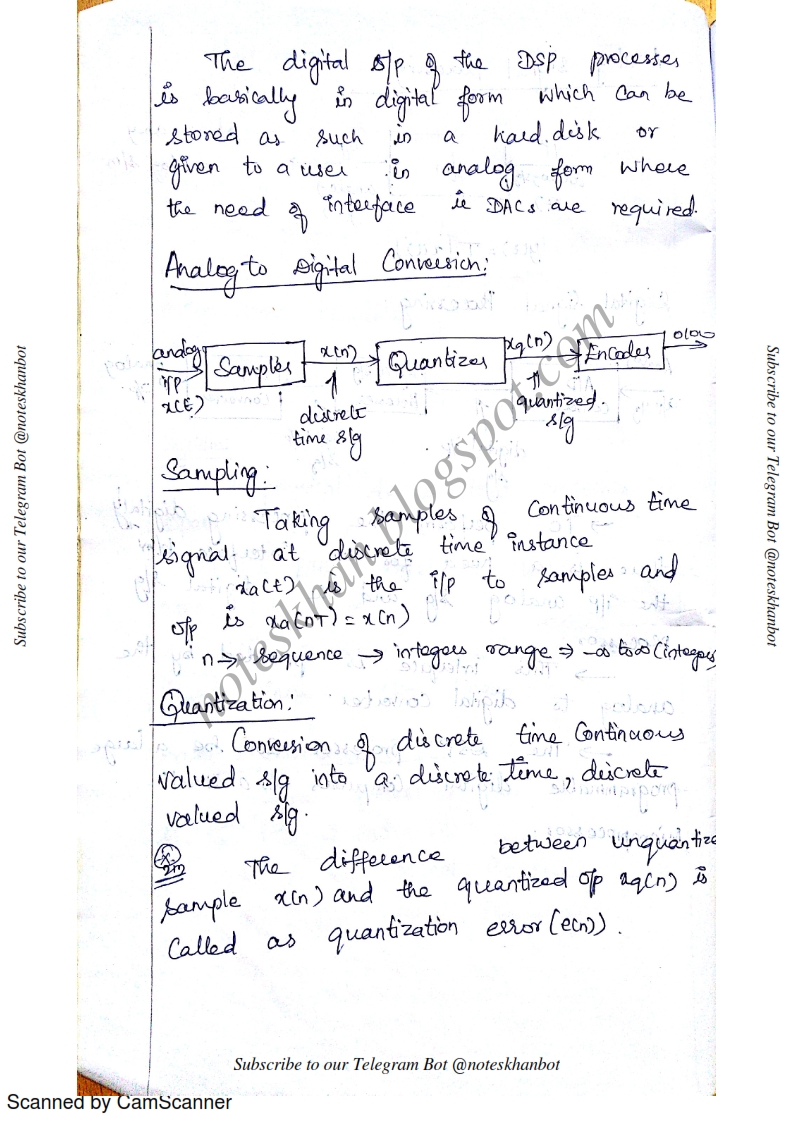 The digital s/p of the DSP processes
is basically in digital form which can be
stored as such in a hard.disk or
given to a user in analog form where
the need of interface ie DACs are required.
Analog to Digital Conversion:
analog
i/p
x(t)
Sampler
x(n)
discrete
time s/g
Quantizer
xq(n)
quantized.
s/g
Encoder
Sampling:
Taking samples of continuous time
signal at discrete time instance
xa(t) is the i/p to samples and
o/p is xa(nT) = x(n)
n → sequence → integers range ⇒ -∞ to ∞ (integers
Quantization:
Conversion of discrete time Continuous
valued s/g into a discrete time, discrete
valued s/g.
2m
The difference between unquantize
sample x(n) and the quantized o/p xq(n) is
called as quantization error (e(n)).
noteskhan.blogspot.com
Subscribe to our Telegram Bot @noteskhanbot
Subscribe to our Telegram Bot @noteskhanbot
Subscribe to our Telegram Bot @noteskhanbot
Scanned by CamScanner